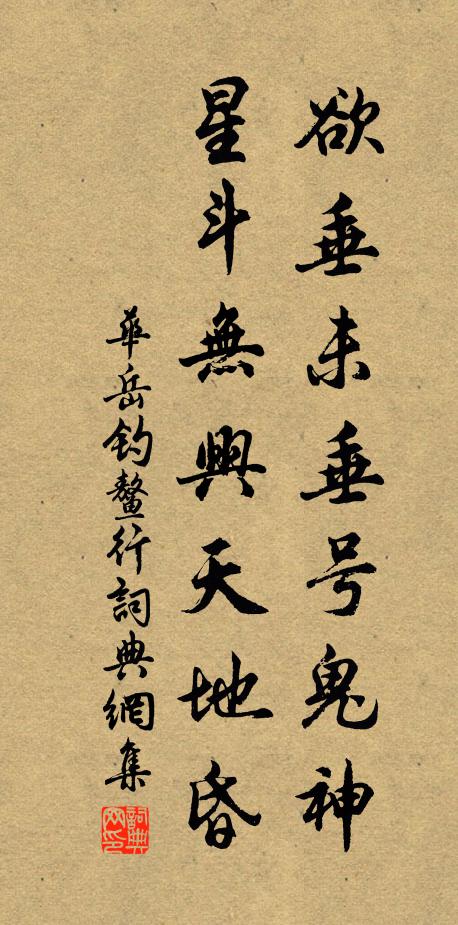 欲垂未垂号鬼神
星斗無興天地昏
華岳釣鰲行詞典網集
詞典網印